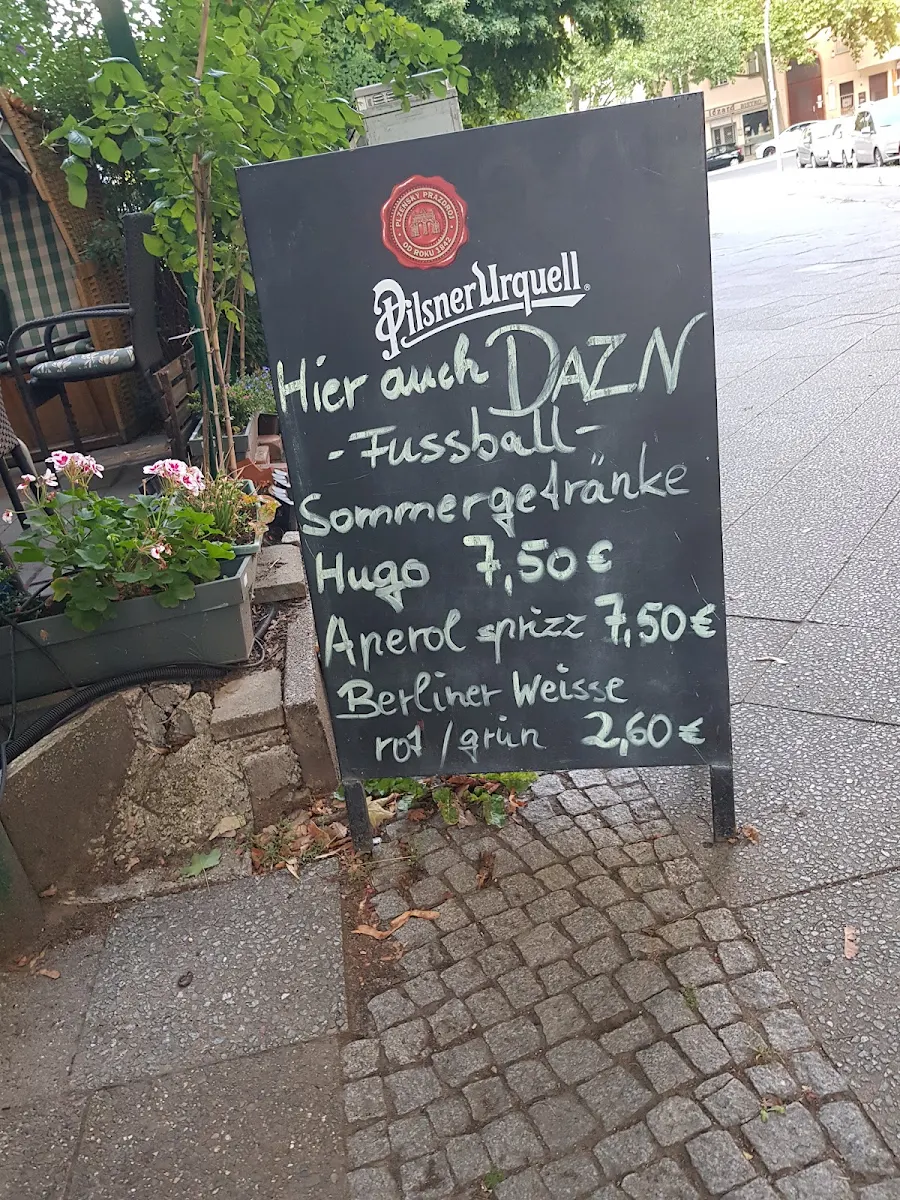 PLZEŇSKÝ PRAZDROJ
OD ROKU 1842
Pilsner Urquell®
Hier auch DAZN
- Fussball -
Sommergetränke
Hugo 7,50 €
Aperol sprizz 7,50 €
Berliner Weisse
rot / grün 2,60 €